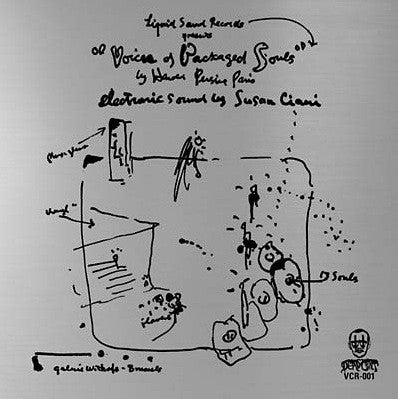 Liquid Sound Records
presents
"Voices of Packaged Souls"
by Harold Persico Paris
electronic sound by Susan Ciani
Souls
galerie withofs - Brussels
DEAD-CERT
VCR-001